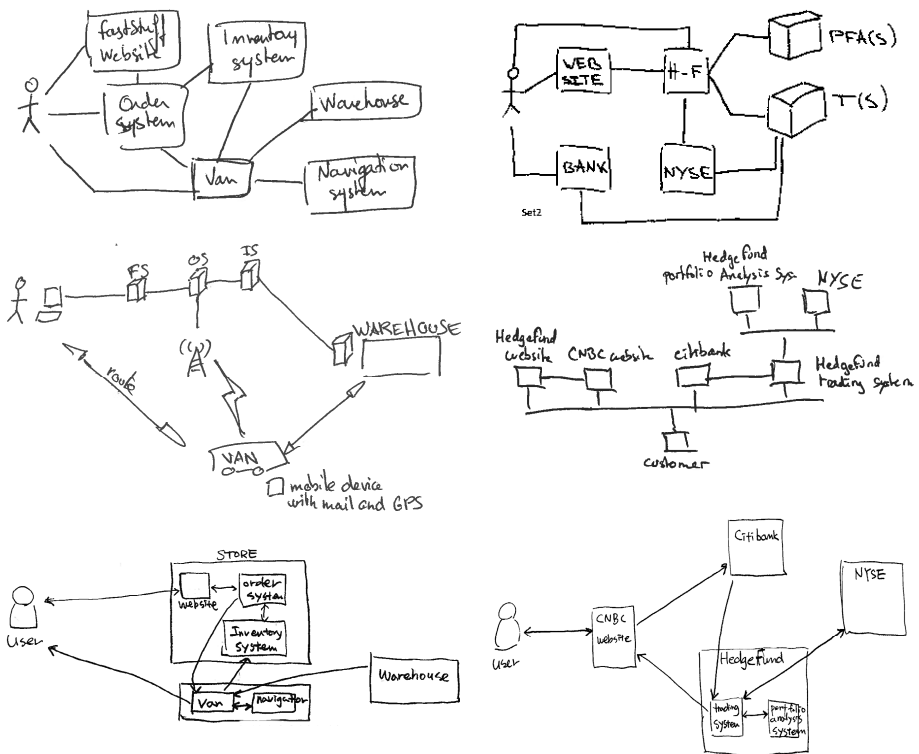 faststuff
Website
Inventory
system
Order
system
Warehouse
Van
Navigation
system
WEB
SITE
H-F
PFA(S)
T(S)
BANK
NYSE
Set2
FS
OS
IS
WAREHOUSE
route
VAN
mobile device
with mail and GPS
Hedgefund
portfolio Analysis Sys
NYSE
Hedgefund
website
CNBC website
citibank
Hedgefund
trading system
customer
STORE
website
order
system
Inventory
system
User
Van
navigation
Warehouse
Citibank
NYSE
CNBC
website
User
Hedgefund
trading
system
portfolio
analysis
system